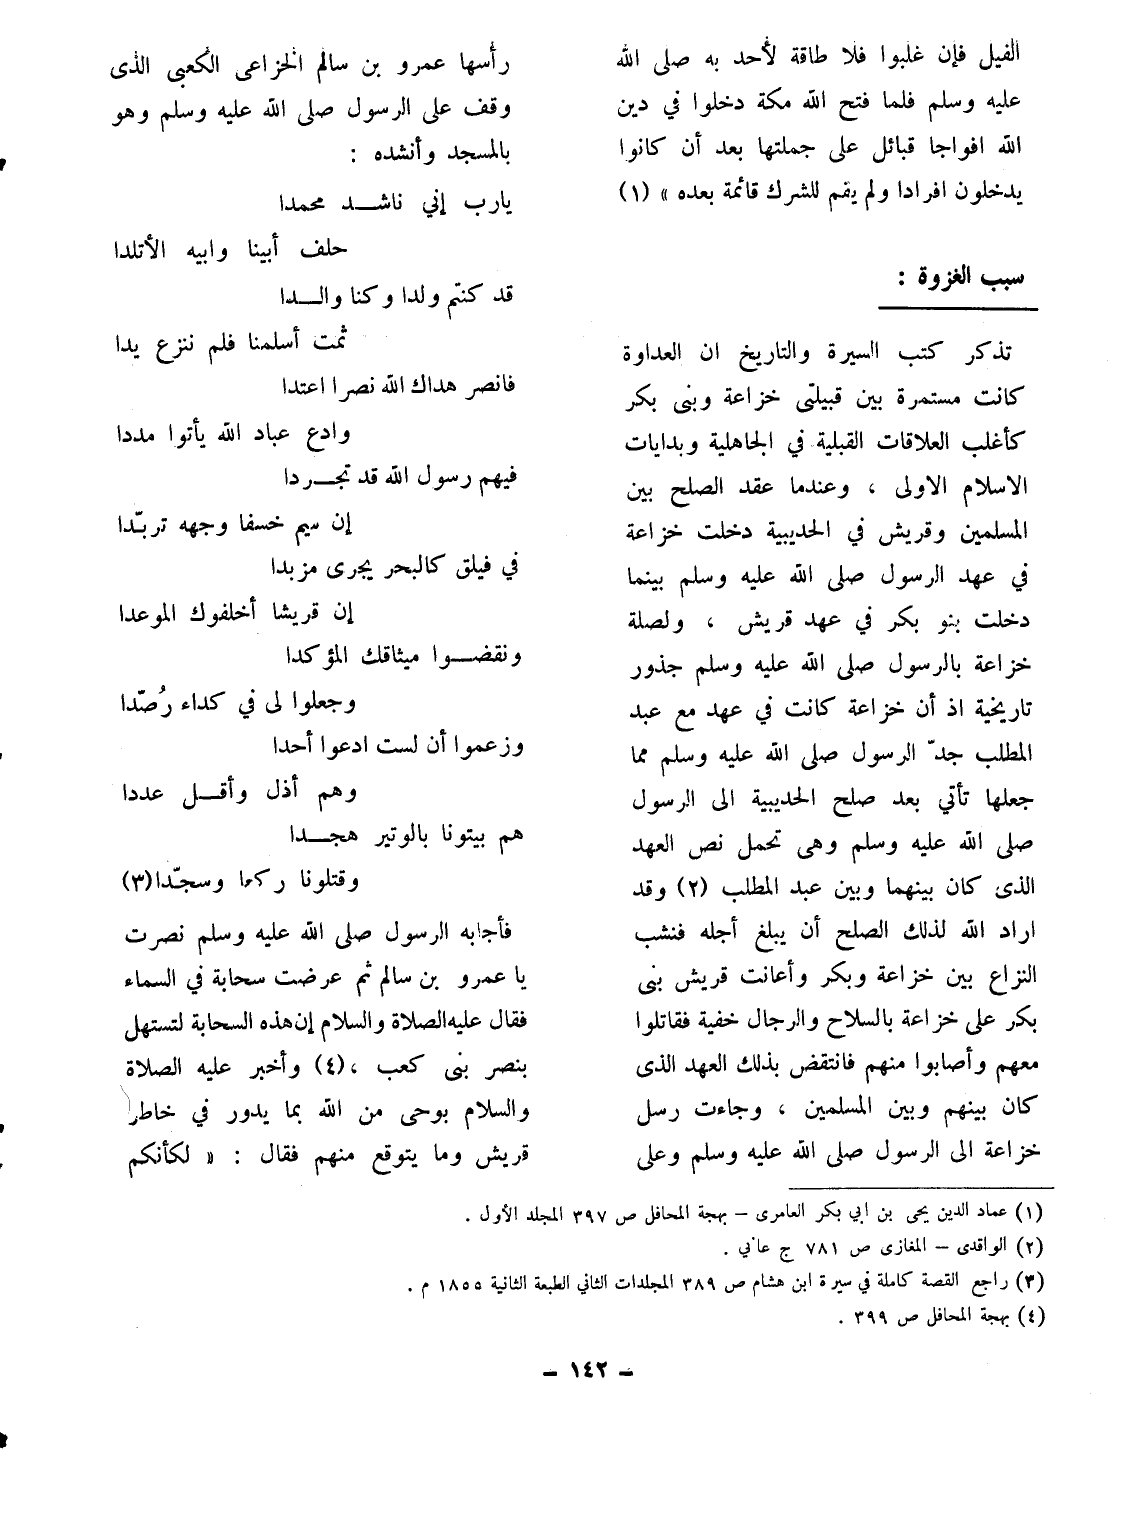 الفيل فإن غلبوا فلا طاقة لأحد به صلى الله
عليه وسلم فلما فتح الله مكة دخلوا في دين
الله افواجا قبائل على جملتها بعد أن كانوا
يدخلون افرادا ولم يقم للشرك قائمة بعده » (١)
سبب الغزوة :
تذكر كتب السيرة والتاريخ ان العداوة
كانت مستمرة بين قبيلتى خزاعة وبنى بكر
كأغلب العلاقات القبلية في الجاهلية وبدايات
الاسلام الاولى ، وعندما عقد الصلح بين
المسلمين وقريش في الحديبية دخلت خزاعة
في عهد الرسول صلى الله عليه وسلم بينما
دخلت بنو بكر في عهد قريش ، ولصلة
خزاعة بالرسول صلى الله عليه وسلم جذور
تاريخية اذ أن خزاعة كانت في عهد مع عبد
المطلب جدّ الرسول صلى الله عليه وسلم مما
جعلها تأتي بعد صلح الحديبية الى الرسول
صلى الله عليه وسلم وهى تحمل نص العهد
الذى كان بينهما وبين عبد المطلب (٢) وقد
اراد الله لذلك الصلح أن يبلغ أجله فنشب
النزاع بين خزاعة وبكر وأعانت قريش بنى
بكر على خزاعة بالسلاح والرجال خفية فقاتلوا
معهم وأصابوا منهم فانتقض بذلك العهد الذى
كان بينهم وبين المسلمين ، وجاءت رسل
خزاعة الى الرسول صلى الله عليه وسلم وعلى
رأسها عمرو بن سالم الخزاعى الكعبي الذى
وقف على الرسول صلى الله عليه وسلم وهو
بالمسجد وأنشده :
يارب إني ناشـــد محمدا
حلف أبينا وابيه الأتلدا
قد كنتم ولدا وكنا والـــدا
ثمت أسلمنا فلم ننزع يدا
فانصر هداك الله نصرا اعتدا
وادع عباد الله يأتوا مددا
فيهم رسول الله قد تجـــردا
إن سيم خسفا وجهه تربّدا
في فيلق كالبحر يجرى مزبدا
إن قريشا أخلفوك الموعدا
ونقضـــوا ميثاقك المؤكدا
وجعلوا لى في كداء رُصّدا
وزعموا أن لست ادعوا أحدا
وهم أذل وأقـــل عددا
هم بيتونا بالوتير هجـــدا
وقتلونا ركعا وسجّدا(٣)
فأجابه الرسول صلى الله عليه وسلم نصرت
يا عمرو بن سالم ثم عرضت سحابة في السماء
فقال عليه الصلاة والسلام إن هذه السحابة لتستهل
بنصر بنى كعب ،(٤) وأخبر عليه الصلاة
والسلام بوحى من الله بما يدور في خاطر
قريش وما يتوقع منهم فقال : « لكأنكم
(١) عماد الدين يحى بن ابي بكر العامرى – بهجة المحافل ص ٣٩٧ المجلد الأول .
(٢) الواقدى – المغازى ص ٧٨١ ج
(٣) راجع القصة كاملة في سيرة ابن هشام ص ٣٨٩ المجلدات الثاني الطبعة الثانية ١٨٥٥ م .
(٤) بهجة المحافل ص ٣٩٩ .
– ١٤٢ –